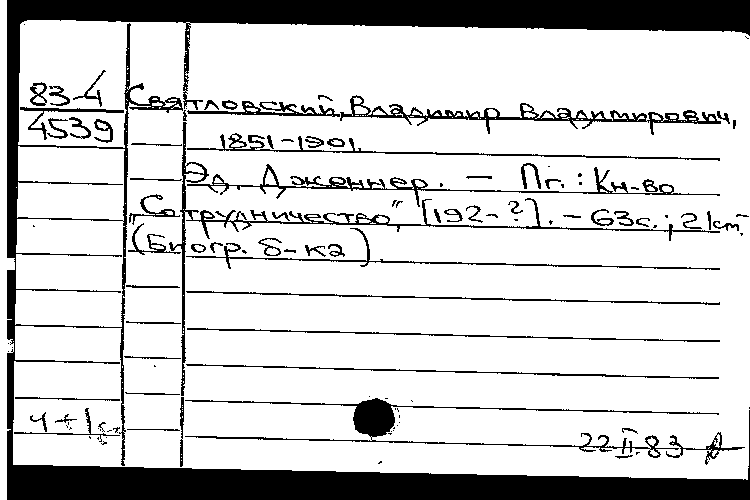 83-4 Святловский, Владимир Владимирович,
4539 1851-1901.
Эд. Дженнер. — Пг.: Кн-во
"Сотрудничество", [192-?]. - 63с.; 21см.
(Биогр. б-ка).
22 II 83